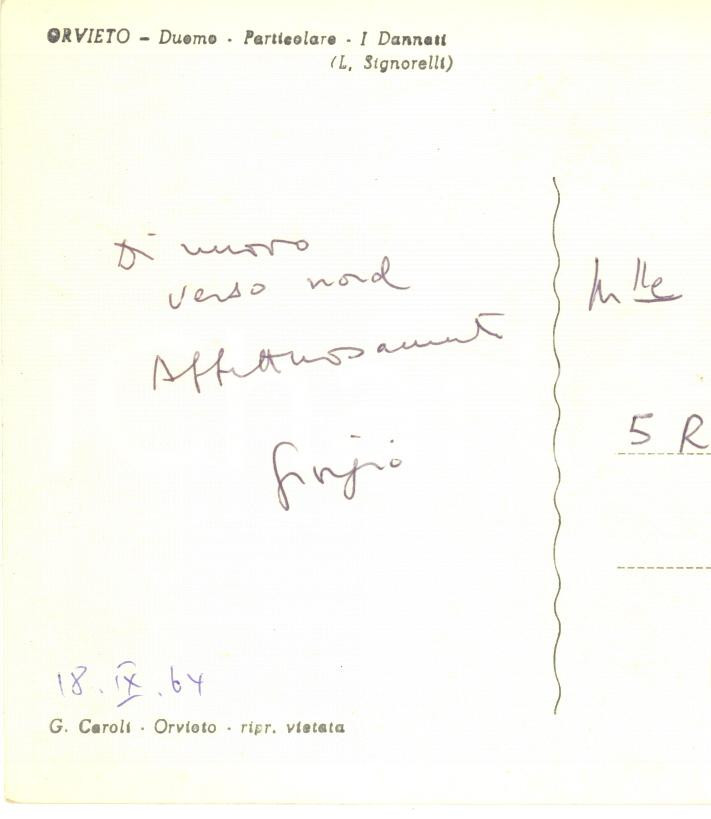 ORVIETO - Duomo - Particolare - I Dannati
(L. Signorelli)
Di nuovo
verso nord
Affettuosamente
Giorgio
Mlle
5 R
18.IX.64
G. Caroli - Orvieto - ripr. vietata